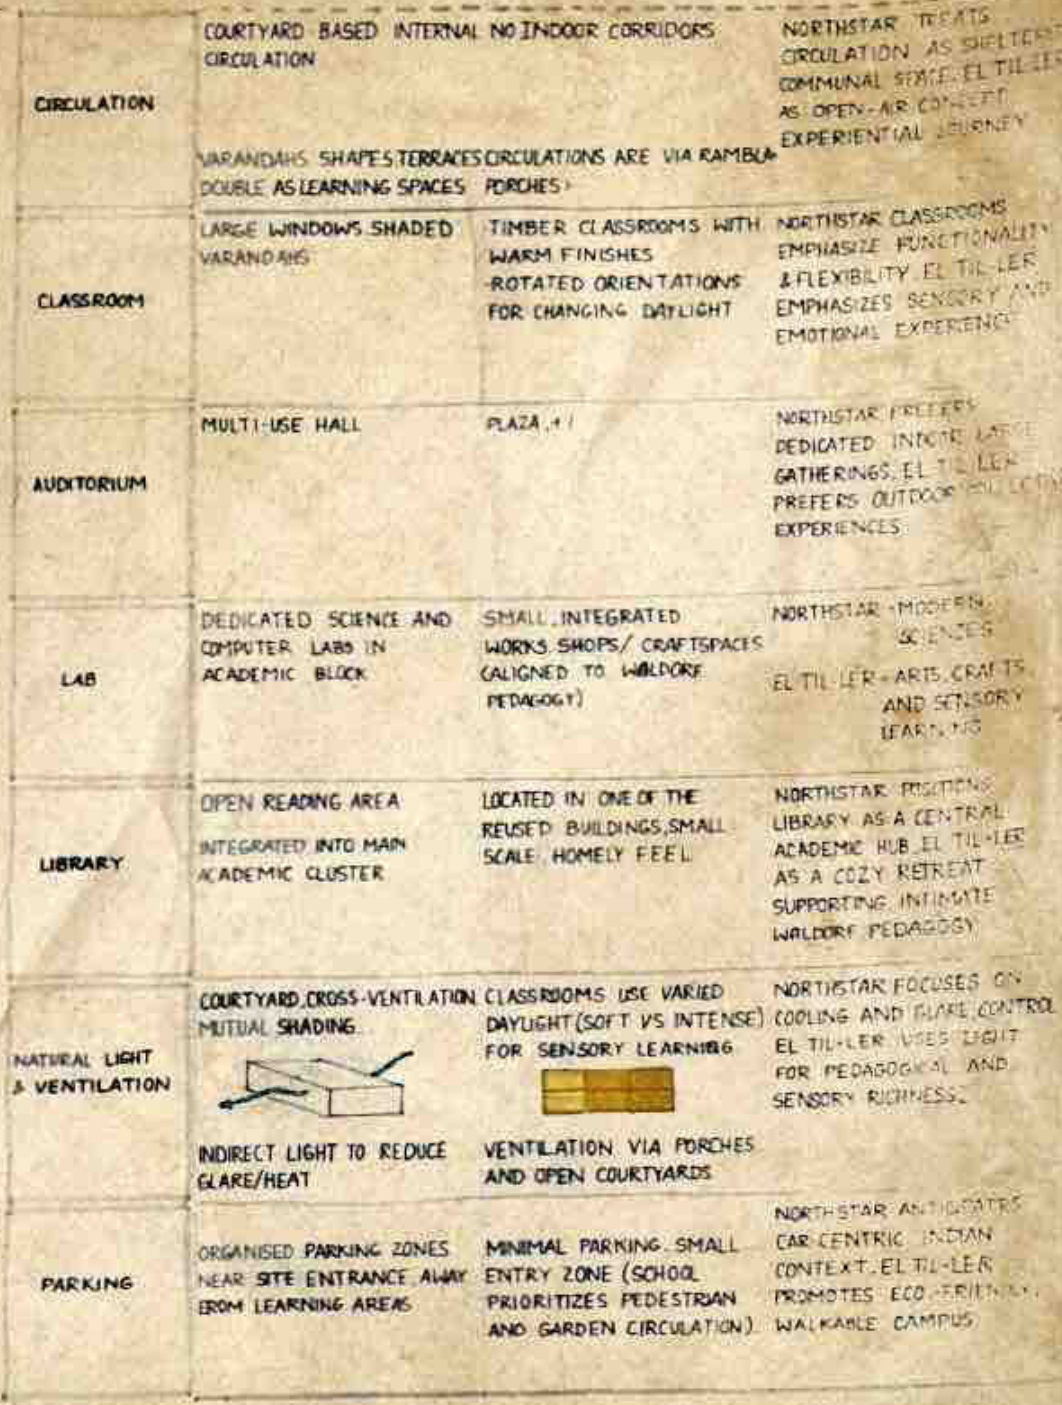 CIRCULATION
COURTYARD BASED INTERNAL
CIRCULATION
VARANDAHS SHAPES TERRACES
DOUBLE AS LEARNING SPACES
NO INDOOR CORRIDORS
CIRCULATIONS ARE VIA RAMBLA
PORCHES
NORTHSTAR TREATS
CIRCULATION AS
COMMUNAL SPACE. EL TIL-LER
AS OPEN-AIR
EXPERIENTIAL JOURNEY
CLASSROOM
LARGE WINDOWS SHADED
VARANDAHS
TIMBER CLASSROOMS WITH
WARM FINISHES
-ROTATED ORIENTATIONS
FOR CHANGING DAYLIGHT
NORTHSTAR CLASSROOMS
EMPHASIZE FUNCTIONALITY
& FLEXIBILITY. EL TIL-LER
EMPHASIZES SENSORY AND
EMOTIONAL EXPERIENCE
AUDITORIUM
MULTI-USE HALL
PLAZA
NORTHSTAR PREFERS
DEDICATED INDOOR LARGE
GATHERINGS. EL TIL-LER
PREFERS OUTDOOR COLLECTIVE
EXPERIENCES
LAB
DEDICATED SCIENCE AND
COMPUTER LABS IN
ACADEMIC BLOCK
SMALL, INTEGRATED
WORKS SHOPS/ CRAFTSPACES
(ALIGNED TO WALDORF
PEDAGOGY)
NORTHSTAR - MODERN
SCIENCES
EL TIL-LER - ARTS, CRAFTS
AND SENSORY
LEARNING
LIBRARY
OPEN READING AREA
INTEGRATED INTO MAIN
ACADEMIC CLUSTER
LOCATED IN ONE OF THE
REUSED BUILDINGS, SMALL
SCALE, HOMELY FEEL
NORTHSTAR POSITIONS
LIBRARY AS A CENTRAL
ACADEMIC HUB. EL TIL-LER
AS A COZY RETREAT
SUPPORTING INTIMATE
WALDORF PEDAGOGY
NATURAL LIGHT
& VENTILATION
COURTYARD, CROSS-VENTILATION
MUTUAL SHADING
INDIRECT LIGHT TO REDUCE
GLARE/HEAT
CLASSROOMS USE VARIED
DAYLIGHT (SOFT VS INTENSE)
FOR SENSORY LEARNING
VENTILATION VIA PORCHES
AND OPEN COURTYARDS
NORTHSTAR FOCUSES ON
COOLING AND GLARE CONTROL
EL TIL-LER USES LIGHT
FOR PEDAGOGICAL AND
SENSORY RICHNESS.
PARKING
ORGANISED PARKING ZONES
NEAR SITE ENTRANCE AWAY
FROM LEARNING AREAS
MINIMAL PARKING. SMALL
ENTRY ZONE (SCHOOL
PRIORITIZES PEDESTRIAN
AND GARDEN CIRCULATION)
NORTHSTAR ANTICIPATES
CAR CENTRIC INDIAN
CONTEXT. EL TIL-LER
PROMOTES ECO-FRIENDLY,
WALKABLE CAMPUS